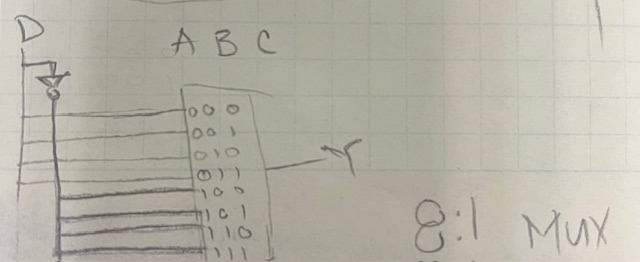 D
A B C
000
001
010
011
Y
100
101
110
111
8:1 Mux